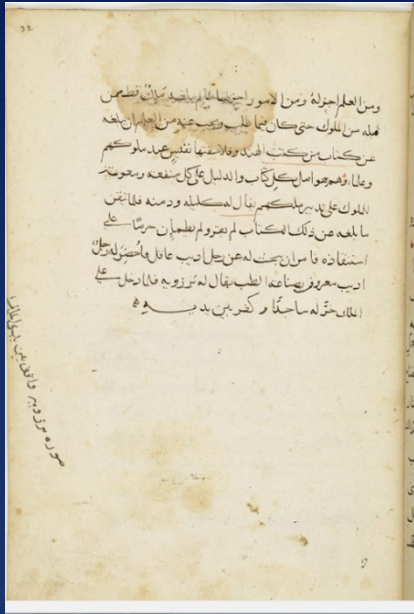 ومن العلم اجزله ومن الامور احسنها ما لم يبلغه ملك قط ممن
قبله من الملوك حتى كان فيما طلب وبحث عنه من العلم ان بلغه
عن كتاب من كتب الهند وفلاسفتها نفيس عند ملوكهم
وعلماؤهم هو اصل كل كتاب والدليل على كل منفعه ومعونته
للملوك على تدبير ملكهم يقال له كليله ودمنه فلما تيقن
ما بلغه عن ذلك الكتاب لم يقر ولم يطمان حرصا على
استفادة فامر ان يبحث له عن رجل اديب عاقل فاحضر له رجل
اديب معروف بصناعه الطب يقال له برزويه فلما دخل على
الملك خر له ساجدا وكفر بين يديه
صوره برزويه واقف بين يدي الملك